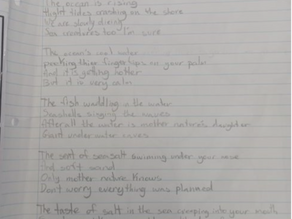 The ocean is rising
Hight tides crashing on the shore
We are slowly
Sea creatures too I'm sure
The ocean's cool water
your palm
And it is getting hotter
But it is very calm
The fish waddling in the water
Seashells singing the waves
After all the water is mother nature's daughter
Giant under water caves
The sent of seasalt swimming under your nose
the salty
Only mother nature knows
Don't worry, everything was planned
The taste of salt in the sea creeping into your mouth